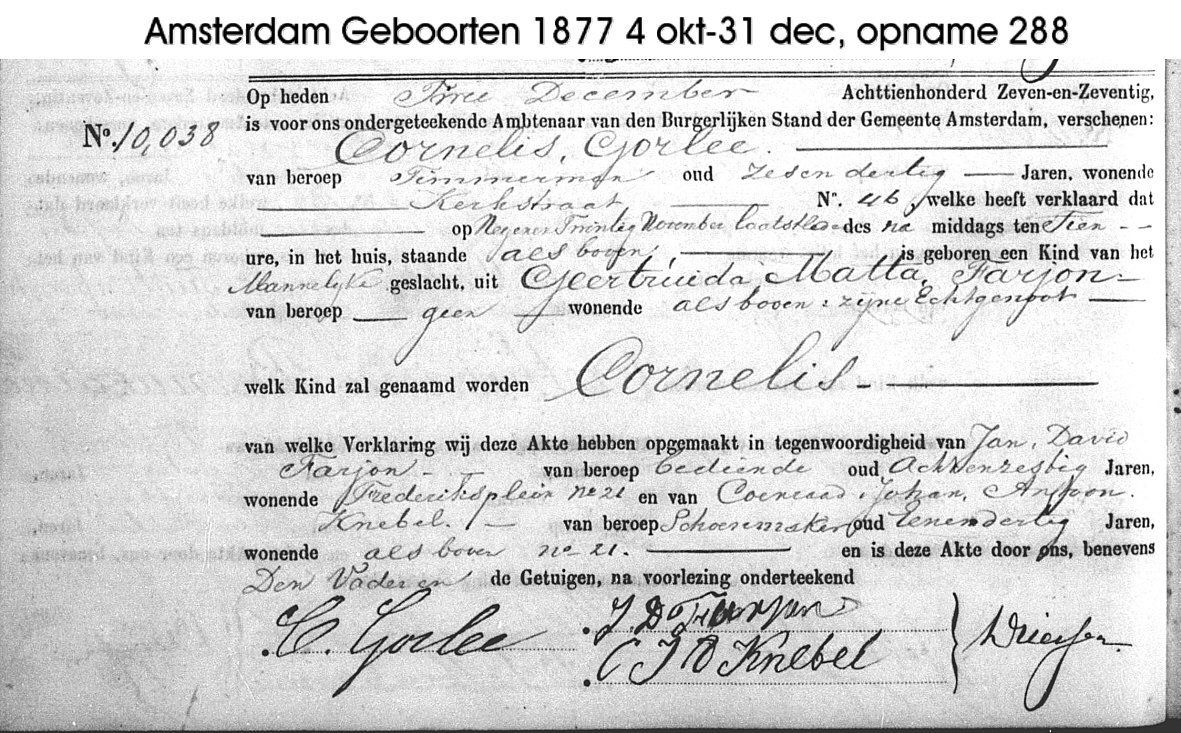 Amsterdam Geboorten 1877 4 okt-31 dec, opname 288
Op heden Twee December Achttienhonderd Zeven-en-Zeventig,
No. 10,038 is voor ons ondergeteekende Ambtenaar van den Burgerlijken Stand der Gemeente Amsterdam, verschenen:
Cornelis, Gorlee.
van beroep Timmerman oud Zesendertig Jaren, wonende
Kerkstraat No. 46, welke heeft verklaard dat
op Negenen Twintig November laatstlede des na middags ten Tien
ure, in het huis, staande als boven, is geboren een Kind van het
Mannelijke geslacht, uit Geertruida Matta, Farjon
van beroep geen wonende als boven: zijne Echtgenoot
welk Kind zal genaamd worden Cornelis
van welke Verklaring wij deze Akte hebben opgemaakt in tegenwoordigheid van Jan, David
Farjon van beroep bediende oud Achtenzestig Jaren,
wonende Frederiksplein no 21 en van Coenraad, Johan, Anthoon.
Knebel. van beroep Schoenmaker oud Eenendertig Jaren,
wonende als boven no 21. en is deze Akte door ons, benevens
Den Vader en de Getuigen, na voorlezing onderteekend
C. Gorlee J. D. Farjon
C J A Knebel